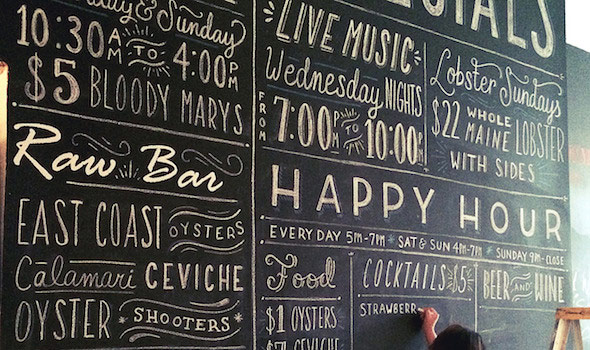 & Sunday
10:30 AM TO 4:00 PM
$5 BLOODY MARYS
Raw Bar
EAST COAST OYSTERS
Calamari CEVICHE
OYSTER SHOOTERS
LIVE MUSIC
Wednesday NIGHTS
FROM 7:00 PM TO 10:00 PM
Lobster Sundays
$22 WHOLE MAINE LOBSTER
WITH SIDES
HAPPY HOUR
EVERY DAY 5PM-7PM * SAT & SUN 4PM-7PM * SUNDAY 9PM-CLOSE
Food
$1 OYSTERS
CEVICHE
COCKTAILS $5
STRAWBERR
BEER AND WINE